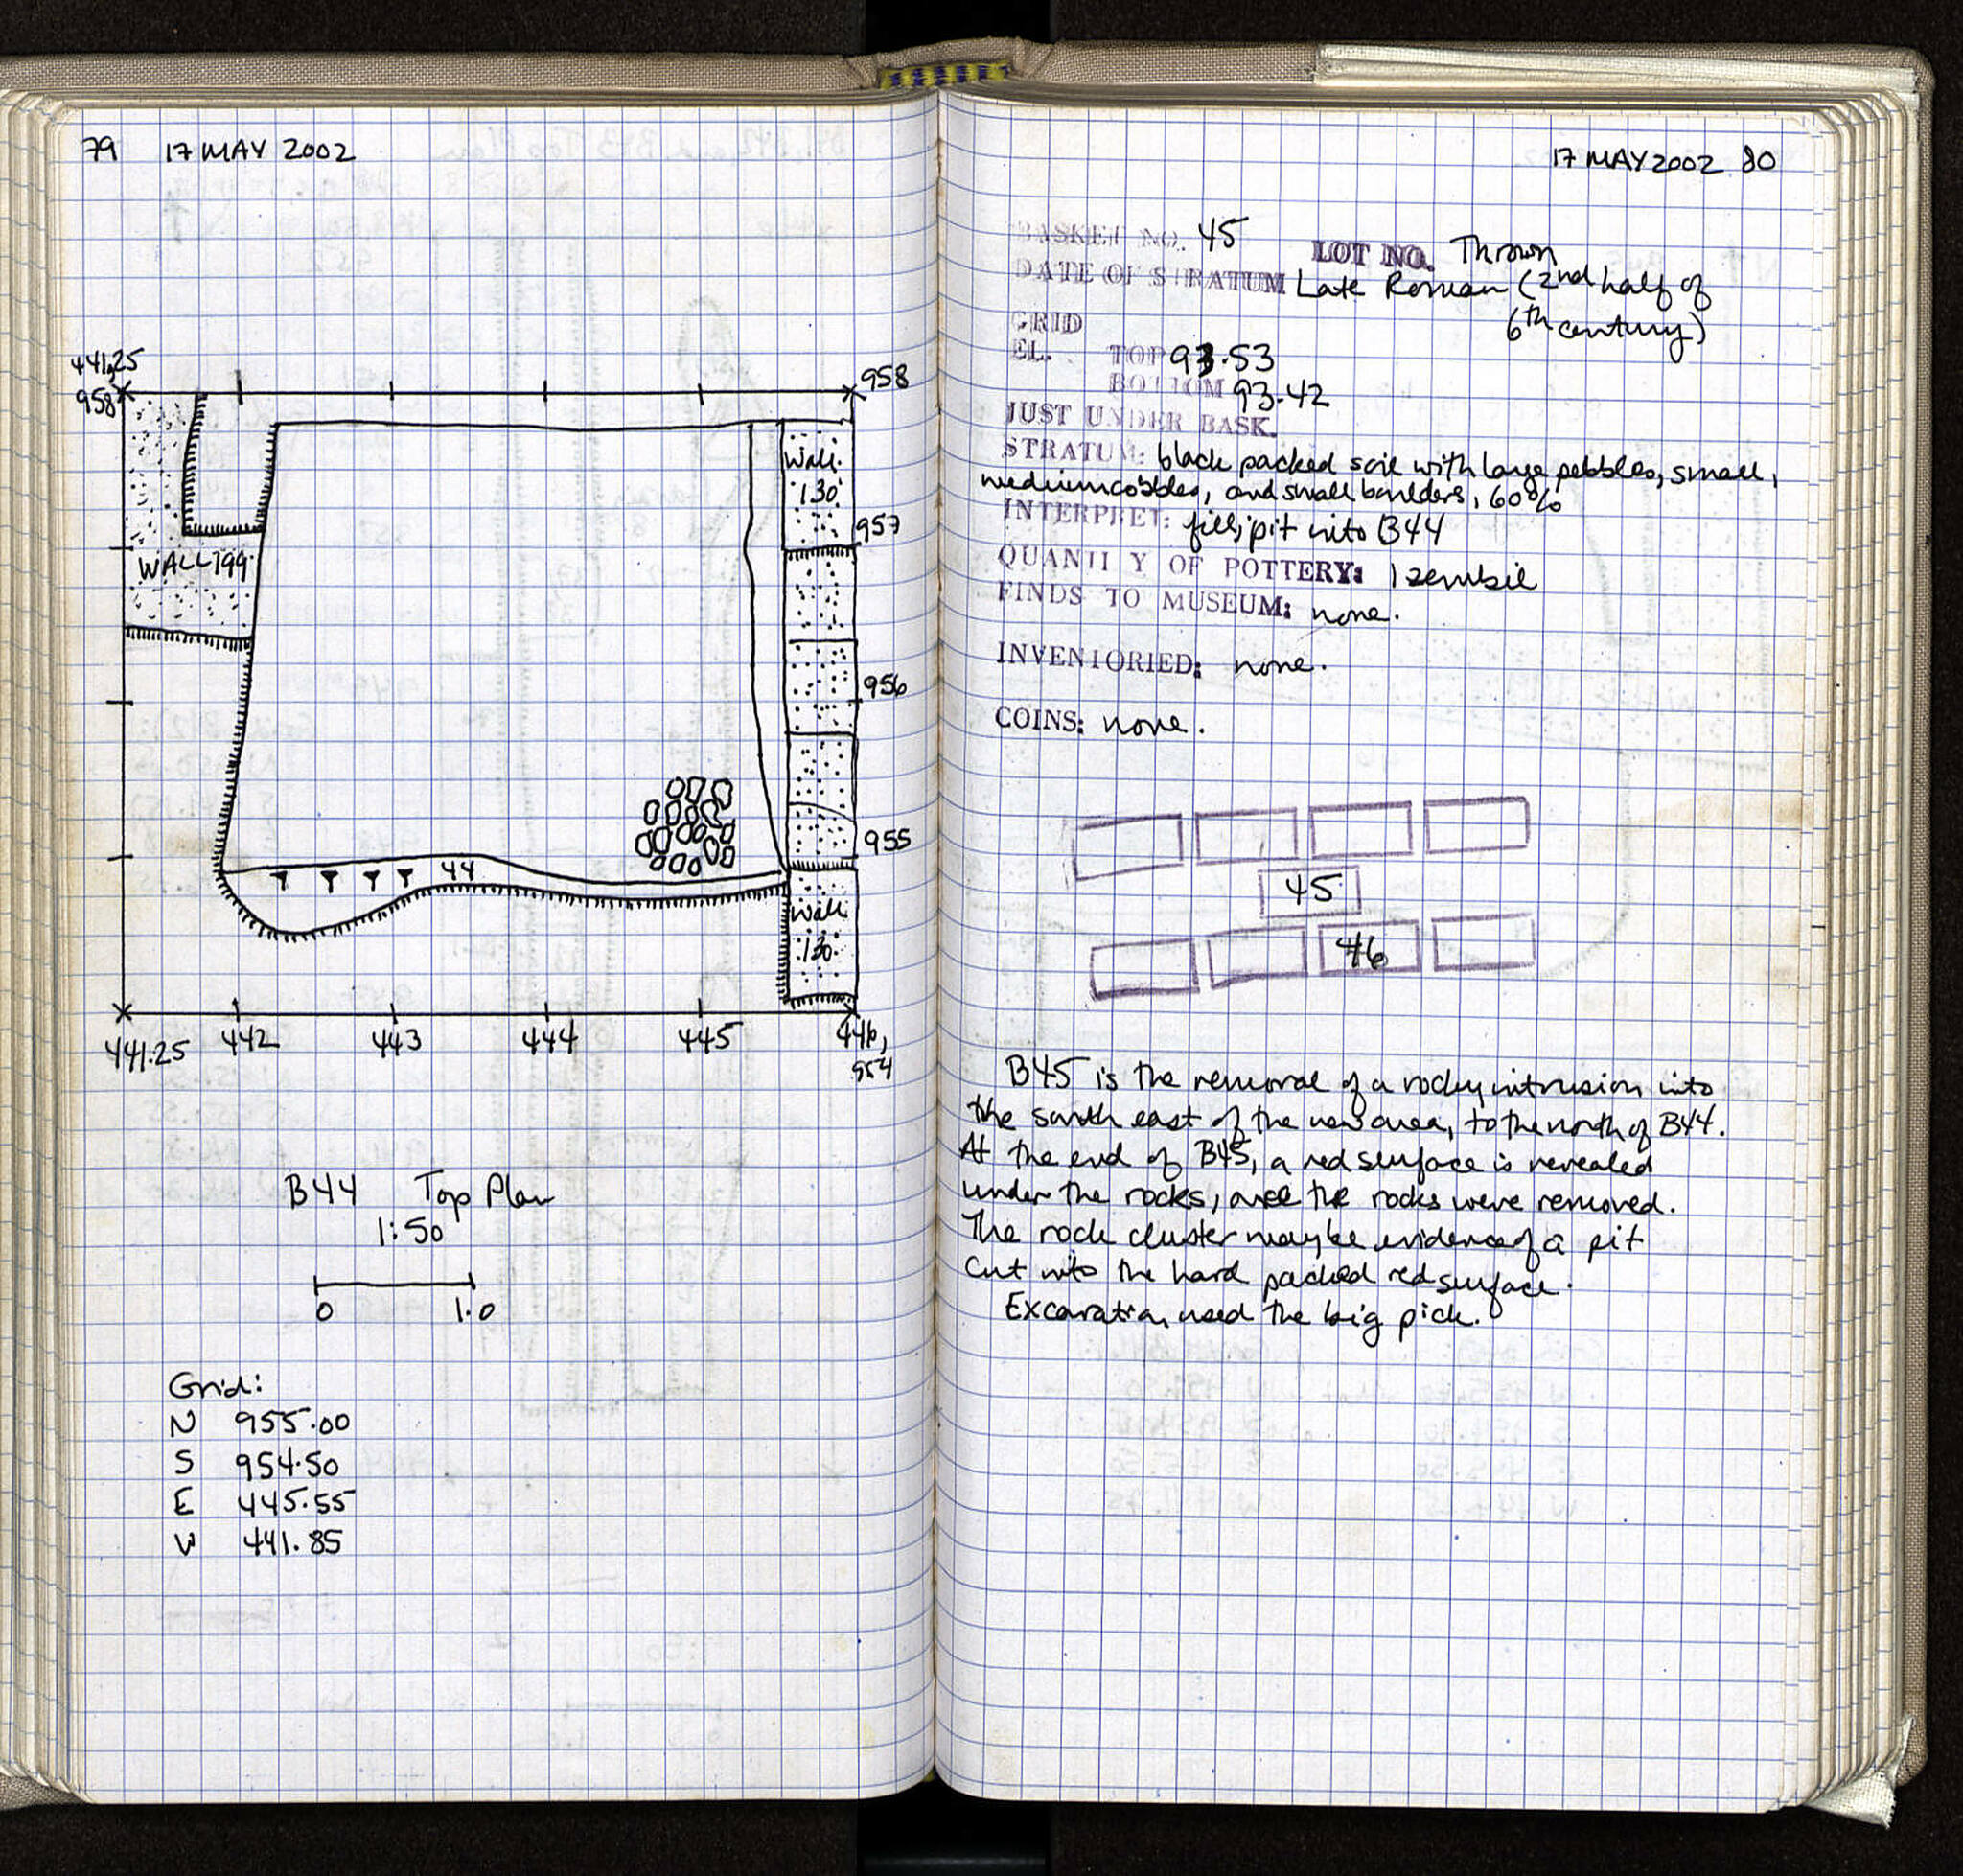 79 17 MAY 2002
441.25
958
958
Wall
130
957
WALL 199
956
955
44
Wall
130
441.25 442 443 444 445 446,
954
B44 Top Plan
1:50
0 1.0
Grid:
N 955.00
S 954.50
E 445.55
W 441.85
17 MAY 2002 80
BASKET NO. 45 LOT NO. Thrown
DATE OF STRATUM Late Roman (2nd half of
6th century)
GRID
EL. TOP 93.53
BOTTOM 93.42
JUST UNDER BASK.
STRATUM: black packed soil with large pebbles, small,
medium cobbles, and small boulders, 60%
INTERPRET: fill, pit into B44
QUANTITY OF POTTERY: 1 zembil
FINDS TO MUSEUM: none.
INVENTORIED: none.
COINS: none.
45
46
B45 is the removal of a rocky intrusion into
the south east of the new area, to the north of B44.
At the end of B45, a red surface is revealed
under the rocks, once the rocks were removed.
The rock cluster may be evidence of a pit
cut into the hard packed red surface.
Excavation used the big pick.